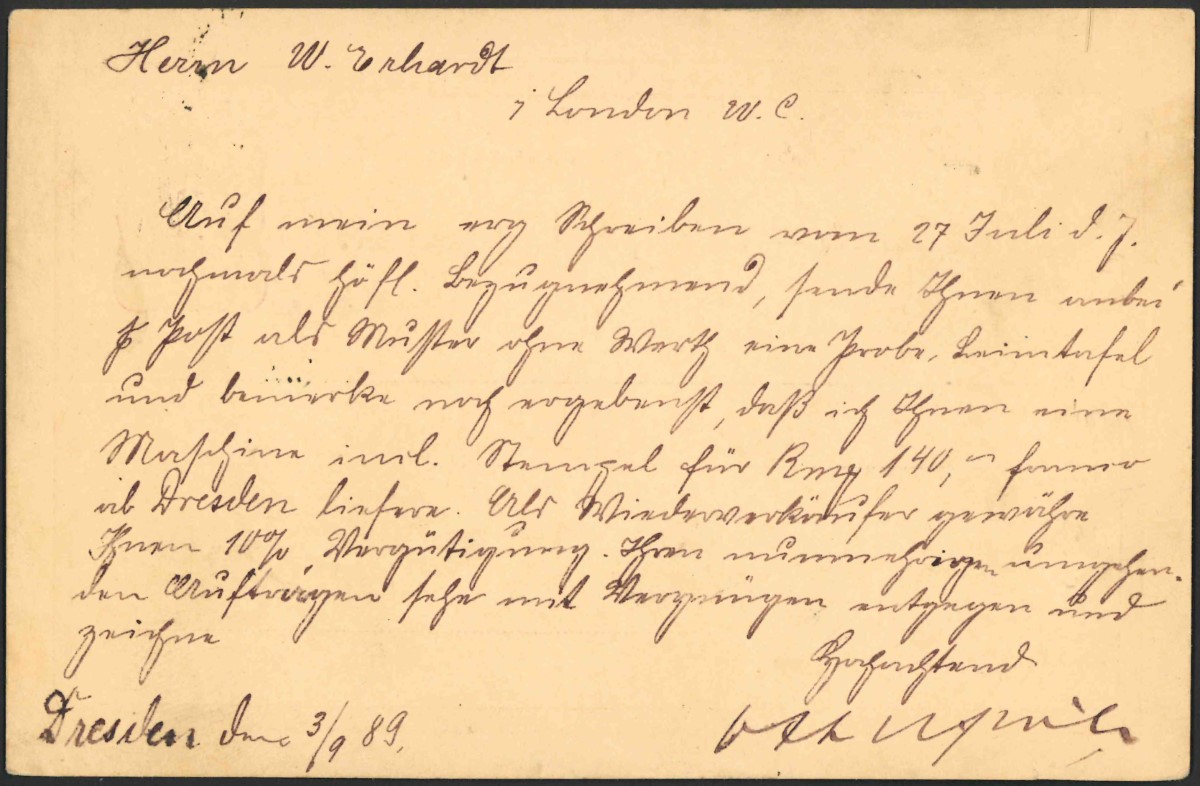 Herrn W. Erhardt
i London W. C.
Auf mein erg Schreiben vom 27 Juli d. J.
nochmals höfl. Bezugnehmend, sende Ihnen anbei
p Post als Muster ohne Werth eine Probe, Leimtafel
und bemerke noch ergebenst, daß ich Ihnen eine
Maschine incl. Stempel für Rm 140,– franco
ab Dresden liefere. Als Wiederverkäufer gewähre
Ihnen 10% Vergütigung. Ihren nunmehrigen umgehen-
den Aufträgen sehe mit Vergnügen entgegen und
zeichne
Hochachtend
Dresden den 3/9 89.